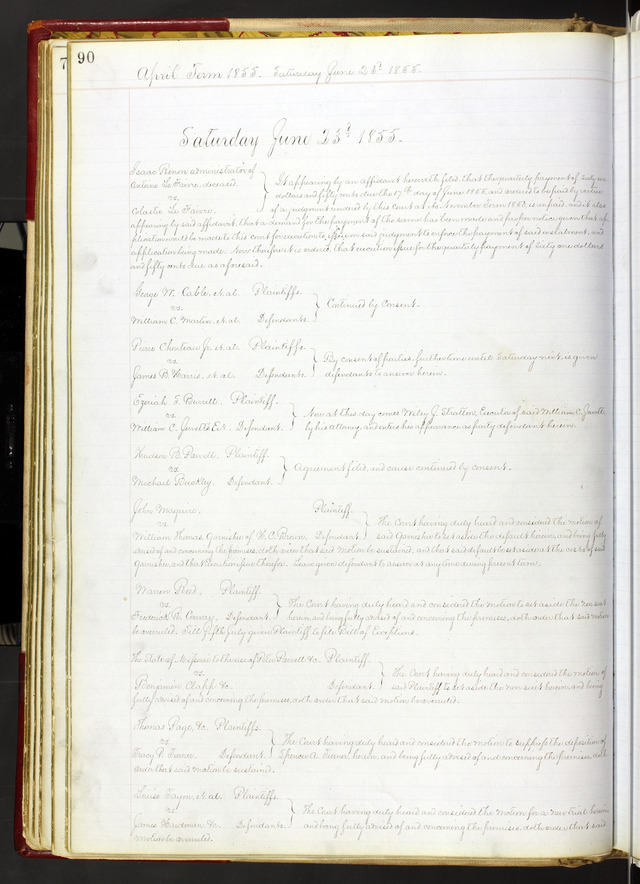 7
90
April Term 1855. Saturday June 23d 1855.
Saturday June 23d 1855.
Isaac administrator of
Antoine Le Favre, deceased.
vs.
Celeste Le Favre.
It appearing by an affidavit herewith filed, that the quarterly payment of Sixty one
dollars and fifty cents due the 17th day of June 1855, and ordered to be paid by virtue
of a judgment rendered by this Court at the November Term 1850, is unpaid, and it also
appearing by said affidavit, that a demand for the payment of the same has been made and proper notice given that ap
plication would be made to this Court for execution to issue on said judgment to enforce the payment of said instalment, and
application being made. Now therefore it is ordered, that execution issue for the quarterly payment of Sixty one dollars
and fifty cents due as aforesaid.
George W. Cable, et al. Plaintiffs.
vs.
William C. Martin, et al. Defendants.
Continued by Consent.
Pierre Chouteau Jr. et al. Plaintiffs.
vs.
James B. Harris, et al. Defendants.
By consent of parties, further time until Saturday next, is given
defendants to answer herein.
F. Burrell. Plaintiff.
vs.
William C. Jewetts Exr. Defendant.
Now at this day comes Wiley J. Stratton, Executor of said William C. Jewett
by his attorney, and enters his appearance as party defendant herein.
Hudson B. Plaintiff.
vs.
Michael Buckley. Defendant.
Agreement filed, and cause continued by consent.
John Maguire. Plaintiff.
vs.
William Thomas, Garnishee of H. C. Brown, Defendant.
The Court having duly heard and considered the motion of
said Garnishee to set aside the default herein, and being fully
advised of and concerning the premises, doth order that said Motion be sustained, and that said default be set aside at the costs of said
Garnishee, and that Execution issue therefor. Leave given defendant to answer at any time during present term.
Warren Reed. Plaintiff.
vs.
Frederick R. Conway. Defendant.
The Court having duly heard and considered the motion to set aside the nonsuit
herein, and being fully advised of and concerning the premises, doth order that said motion
be overruled. Till fifth July given Plaintiff to file Bill of Exceptions.
The State of Missouri to the use of Peter &c. Plaintiff.
vs.
Benjamin Clapp &c. Defendant.
The Court having duly heard and considered the motion of
said Plaintiff to set aside the nonsuit herein, and being
fully advised of and concerning the premises, doth order that said motion be overruled.
Thomas Page, &c. Plaintiffs.
vs.
Tracy P. Defendant.
The Court having duly heard and considered the motion to suppress the deposition of
Spencer A. herein, and being fully advised of and concerning the premises, doth
order that said motion be sustained.
Louise et al. Plaintiffs.
vs.
James &c. Defendants.
The Court having duly heard and considered the motion for a new trial herein
and being fully advised of and concerning the premises, doth order that said
motion be overruled.